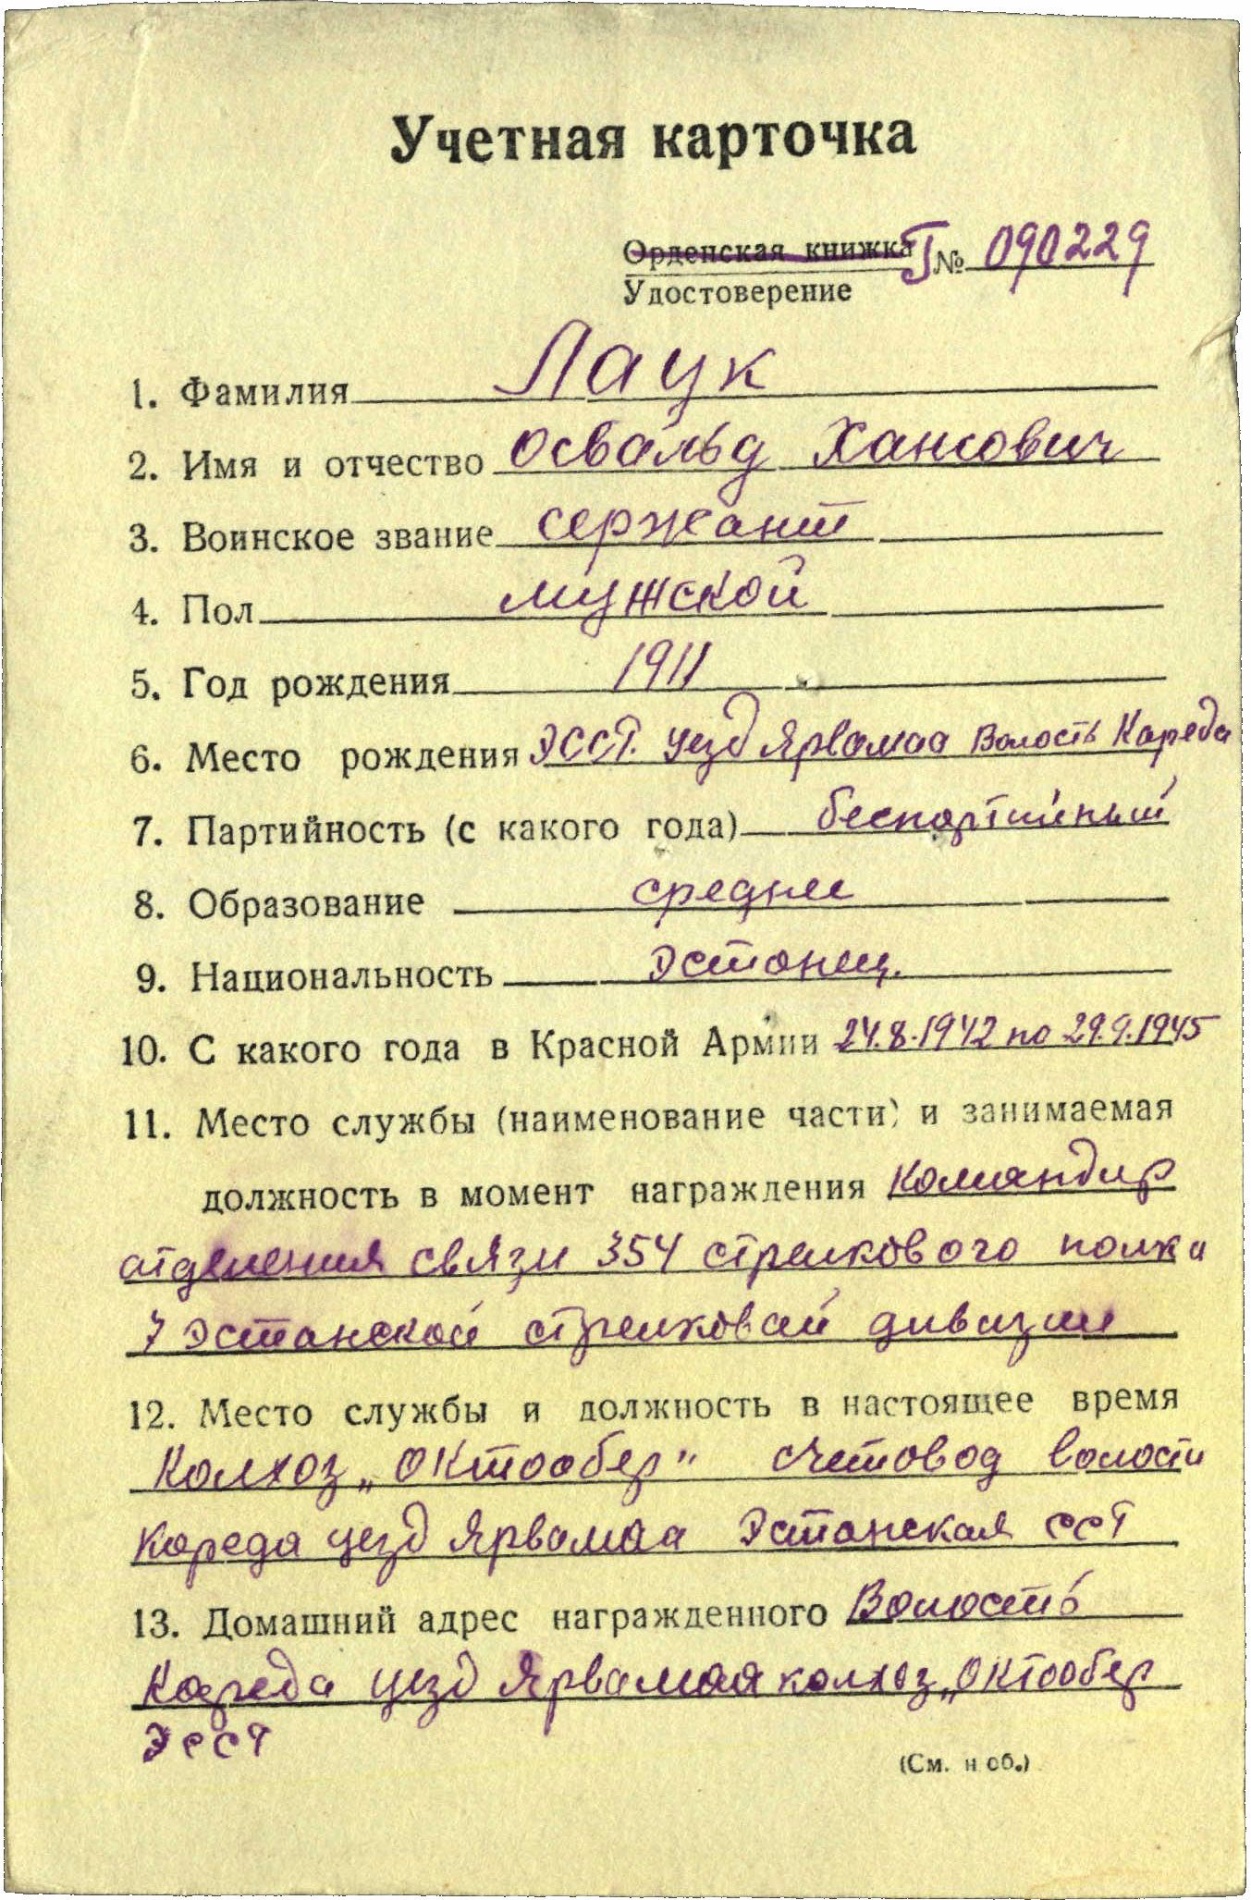 Учетная карточка
Орденская книжка № 090229
Удостоверение
1. Фамилия Лаук
2. Имя и отчество Освальд Хансович
3. Воинское звание сержант
4. Пол мужской
5. Год рождения 1911
6. Место рождения ЭССР. уезд Ярвамаа Волость Кареда
7. Партийность (с какого года) беспартийный
8. Образование средние
9. Национальность Эстонец.
10. С какого года в Красной Армии 24.8.1942 по 29.9.1945
11. Место службы (наименование части) и занимаемая
должность в момент награждения Командир
отделения связи 354 стрелкового полка
7 Эстонской стрелковой дивизии
12. Место службы и должность в настоящее время
Колхоз „Октообер" счетовод волости
Кареда уезд Ярвамаа Эстонская ССР
13. Домашний адрес награжденного Волость
Кареда уезд Ярвамаа колхоз „Октообер
ЭССР
(См. н об.)